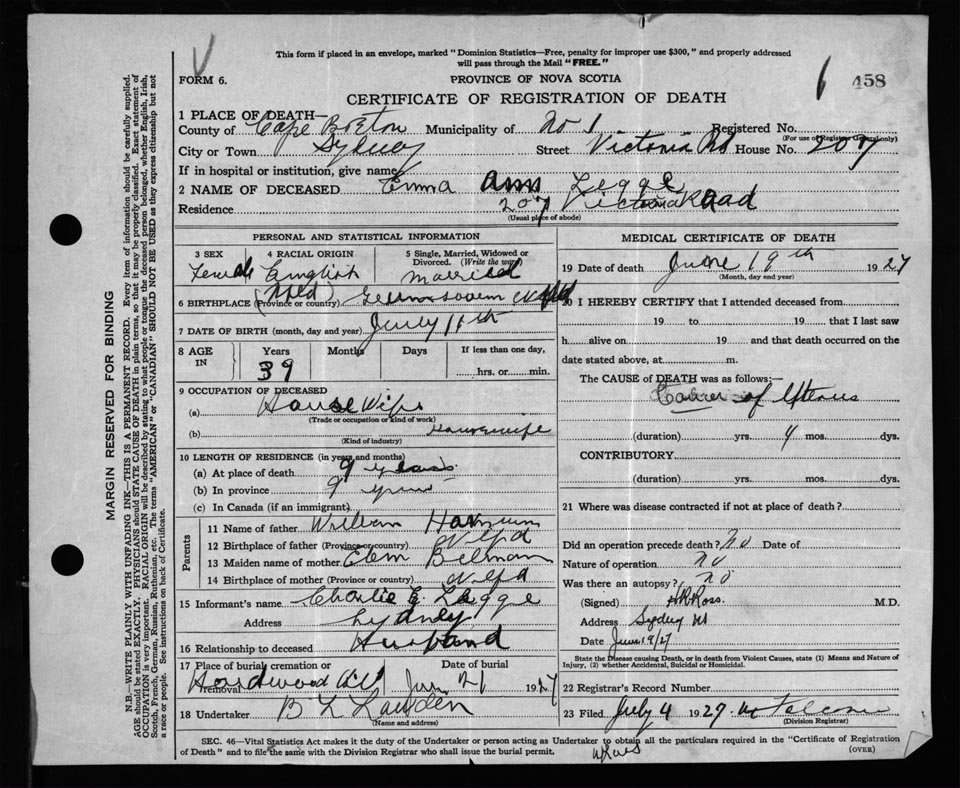 This form if placed in an envelope, marked "Dominion Statistics—Free, penalty for improper use $300," and properly addressed
will pass through the Mail "FREE."
FORM 6.
PROVINCE OF NOVA SCOTIA
6 458
CERTIFICATE OF REGISTRATION OF DEATH
1 PLACE OF DEATH—
County of Cape Breton Municipality of No 1 Registered No.
(For use of Registrar General only)
City or Town Sydney Street Victoria Rd House No. 207
If in hospital or institution, give name
2 NAME OF DECEASED Emma Ann Legge
Residence 207 Victoria Road
(Usual place of abode)
PERSONAL AND STATISTICAL INFORMATION
3 SEX Female
4 RACIAL ORIGIN English
5 Single, Married, Widowed or Divorced. (Write the word) Married
6 BIRTHPLACE (Province or country) (Nfld)
7 DATE OF BIRTH (month, day and year) July 11th
8 AGE IN Years Months Days If less than one day,
39 hrs. or min.
9 OCCUPATION OF DECEASED
(a) House Wife
(Trade or occupation or kind of work)
(b) Housewife
(Kind of industry)
10 LENGTH OF RESIDENCE (in years and months)
(a) At place of death 9 years
(b) In province 9 years
(c) In Canada (if an immigrant)
Parents
11 Name of father William
12 Birthplace of father (Province or country) Nfld
13 Maiden name of mother
14 Birthplace of mother (Province or country) Nfld
15 Informant's name Charlie G. Legge
Address Sydney
16 Relationship to deceased Husband
17 Place of burial, cremation or removal Hardwood Hill
Date of burial June 21 1927
18 Undertaker B L
(Name and address)
MEDICAL CERTIFICATE OF DEATH
19 Date of death June 19th 1927
(Month, day and year)
20 I HEREBY CERTIFY that I attended deceased from
19 to 19 that I last saw
h alive on 19 and that death occurred on the
date stated above, at m.
The CAUSE of DEATH was as follows:—
Cancer of Uterus
(duration) yrs. 4 mos. dys.
CONTRIBUTORY
(duration) yrs. mos. dys.
21 Where was disease contracted if not at place of death?
Did an operation precede death? No Date of
Nature of operation no
Was there an autopsy? no
(Signed) Ross. M.D.
Address Sydney NS
Date June 19/27
State the Disease causing Death, or in death from Violent Causes, state (1) Means and Nature of
Injury, (2) whether Accidental, Suicidal or Homicidal.
22 Registrar's Record Number
23 Filed July 4 1927
(Division Registrar)
SEC. 46—Vital Statistics Act makes it the duty of the Undertaker or person acting as Undertaker to obtain all the particulars required in the "Certificate of Registration
of Death" and to file the same with the Division Registrar who shall issue the burial permit.
(OVER)
MARGIN RESERVED FOR BINDING
N.B.—WRITE PLAINLY WITH UNFADING INK—THIS IS A PERMANENT RECORD. Every item of information should be carefully supplied.
AGE should be stated EXACTLY. PHYSICIANS should STATE CAUSE OF DEATH in plain terms, so that it may be properly classified. Exact statement of
OCCUPATION is very important. RACIAL ORIGIN will be described by stating to what people or tongue the deceased person belonged, whether English, Irish,
Scotch, French, German, Russian, Ruthenian, etc. The terms "AMERICAN" or "CANADIAN" SHOULD NOT BE USED as they express citizenship but not
a race or people. See instructions on back of Certificate.